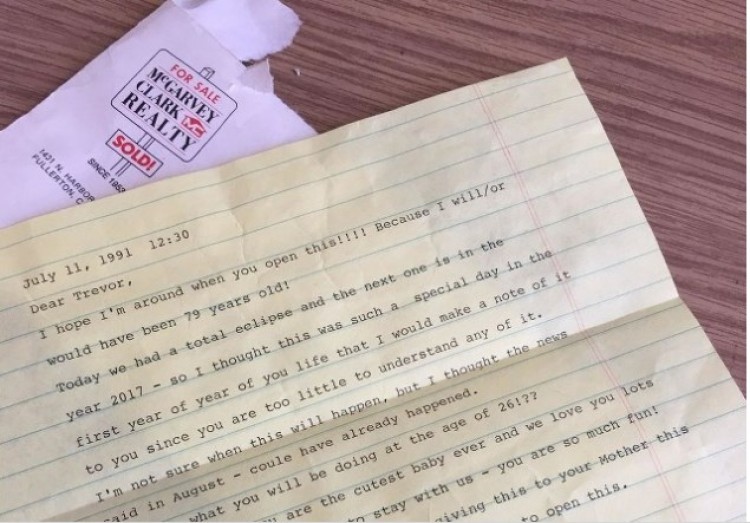 FOR SALE
McGARVEY
CLARK MC
REALTY
SOLD!
SINCE 1953
1421 N. HARBOR
FULLERTON, C
July 11, 1991 12:30
Dear Trevor,
I hope I'm around when you open this!!!! Because I will/or
would have been 79 years old!
Today we had a total eclipse and the next one is in the
year 2017 - so I thought this was such a special day in the
first year of year of you life that I would make a note of it
to you since you are too little to understand any of it.
I'm not sure when this will happen, but I thought the news
aid in August - coule have already happened.
what you will be doing at the age of 26!??
are the cutest baby ever and we love you lots
to stay with us - you are so much fun!
iving this to your Mother this
to open this.